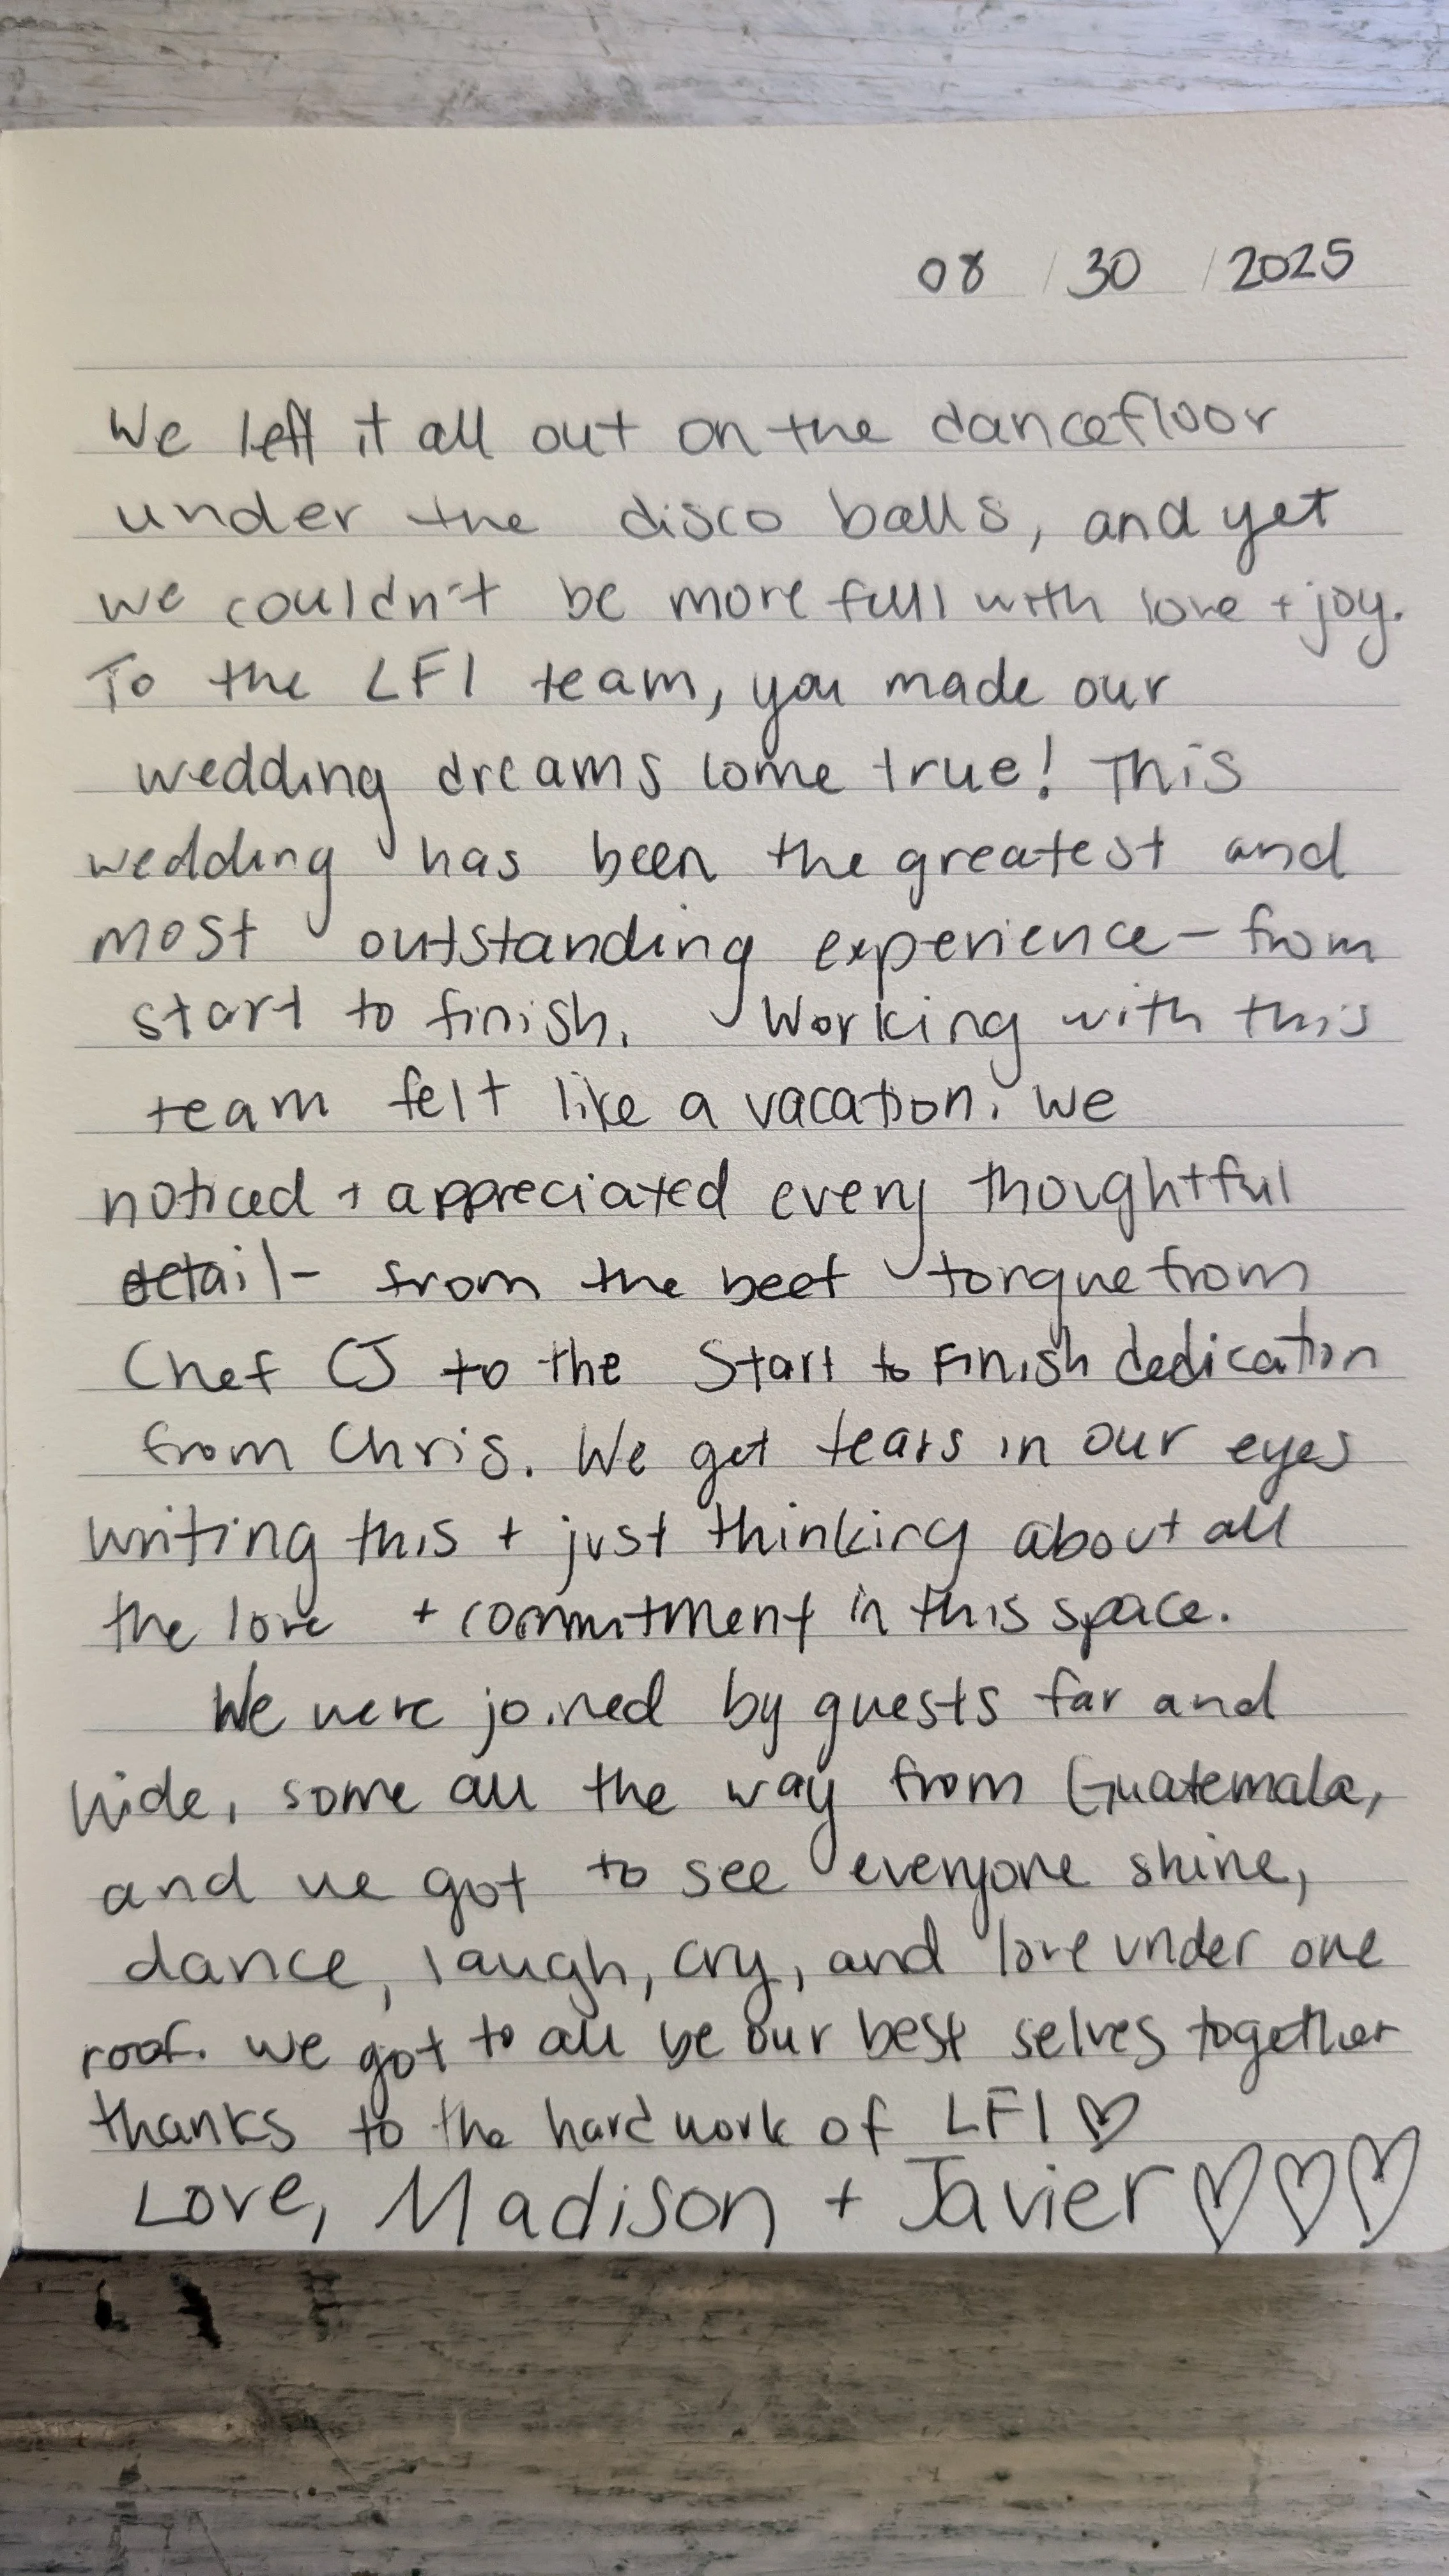 08 / 30 / 2025
We left it all out on the dancefloor
under the disco balls, and yet
we couldn't be more full with love + joy.
To the LFI team, you made our
wedding dreams come true! This
wedding has been the greatest and
most outstanding experience - from
start to finish. Working with this
team felt like a vacation. We
noticed + appreciated every thoughtful
detail - from the beef torque from
Chef CJ to the start to finish dedication
from Chris. We get tears in our eyes
writing this + just thinking about all
the love + commitment in this space.
We were joined by guests far and
wide, some all the way from Guatemala,
and we got to see everyone shine,
dance, laugh, cry, and love under one
roof. We got to all be our best selves together
thanks to the hard work of LFI ♡
Love, Madison + Javier ♡♡♡